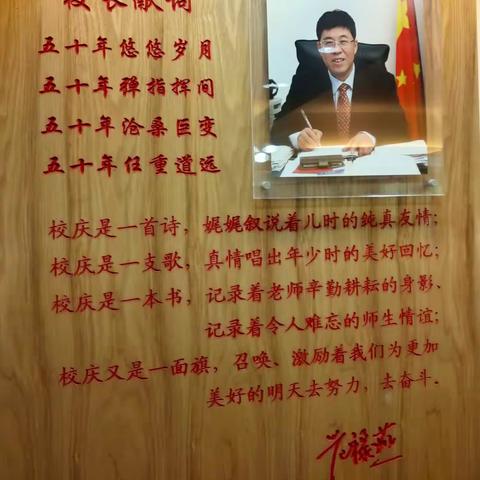 校长献词
五十年悠悠岁月
五十年弹指挥间
五十年沧桑巨变
五十年任重道远
校庆是一首诗，娓娓叙说着儿时的纯真友情；
校庆是一支歌，真情唱出年少时的美好回忆；
校庆是一本书，记录着老师辛勤耕耘的身影、
记录着令人难忘的师生情谊；
校庆又是一面旗，召唤、激励着我们为更加
美好的明天去努力，去奋斗。